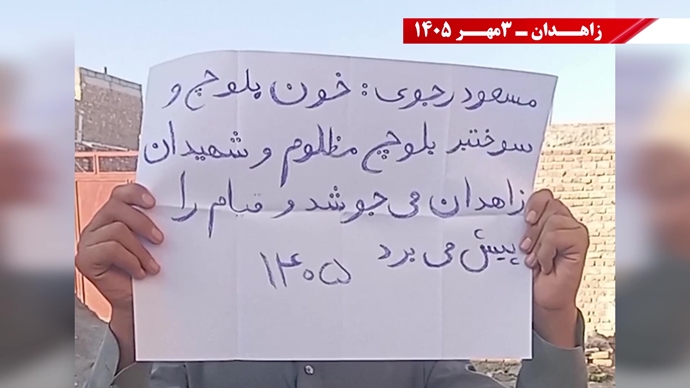 زاهـدان ـ ۳مهـر ۱۴۰۵
مسعود رجوی: خون بلوچ و
سوختبر بلوچ مظلوم و شهیدان
زاهدان می جوشد و قیام را
پیش می برد
۱۴۰۵